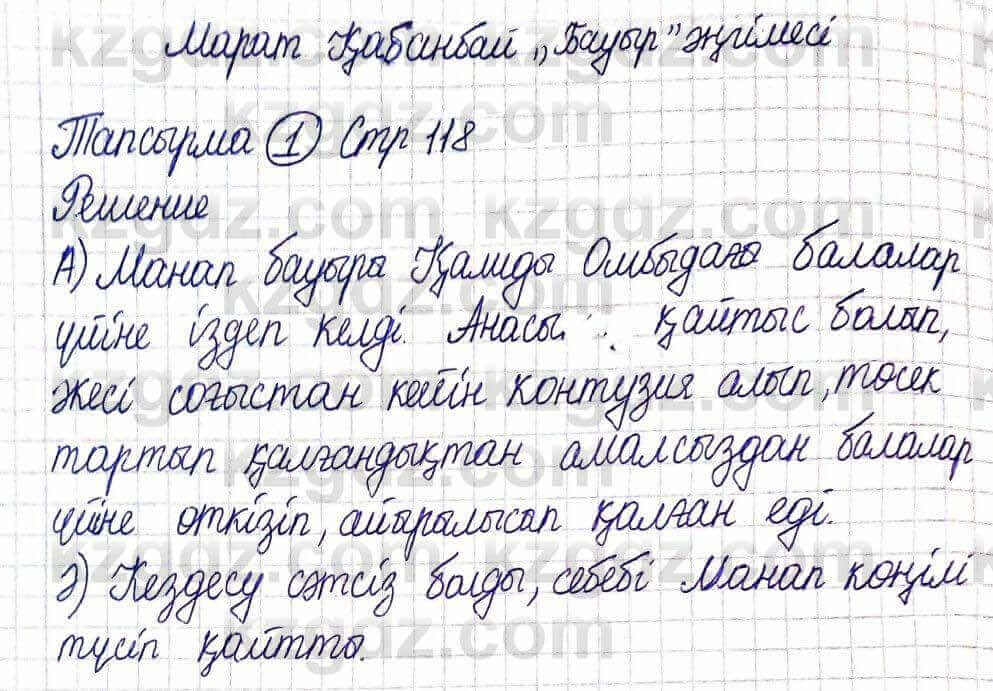 Марат Қабанбай „Бауыр" әңгімесі
Тапсырма 1 Стр 118
Решение
А) Манап бауыры Қалиды Омбыдағы балалар
үйіне іздеп келді. Анасы қайтыс болып,
әкесі соғыстан кейін контузия алып, төсек
тартып қалғандықтан амалсыздан балалар
үйіне өткізіп, айырылысып қалған еді.
Ә) Кездесу сәтсіз болды, себебі Манап көңілі
түсіп қайтты.
kzgdz.com